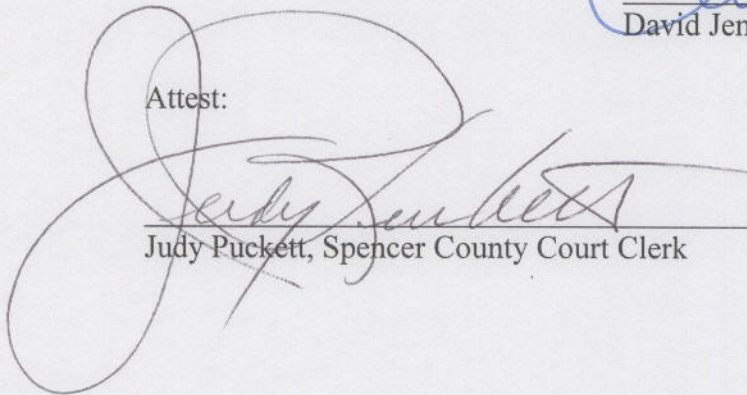 David Jen
Attest:
Judy Puckett
Judy Puckett, Spencer County Court Clerk